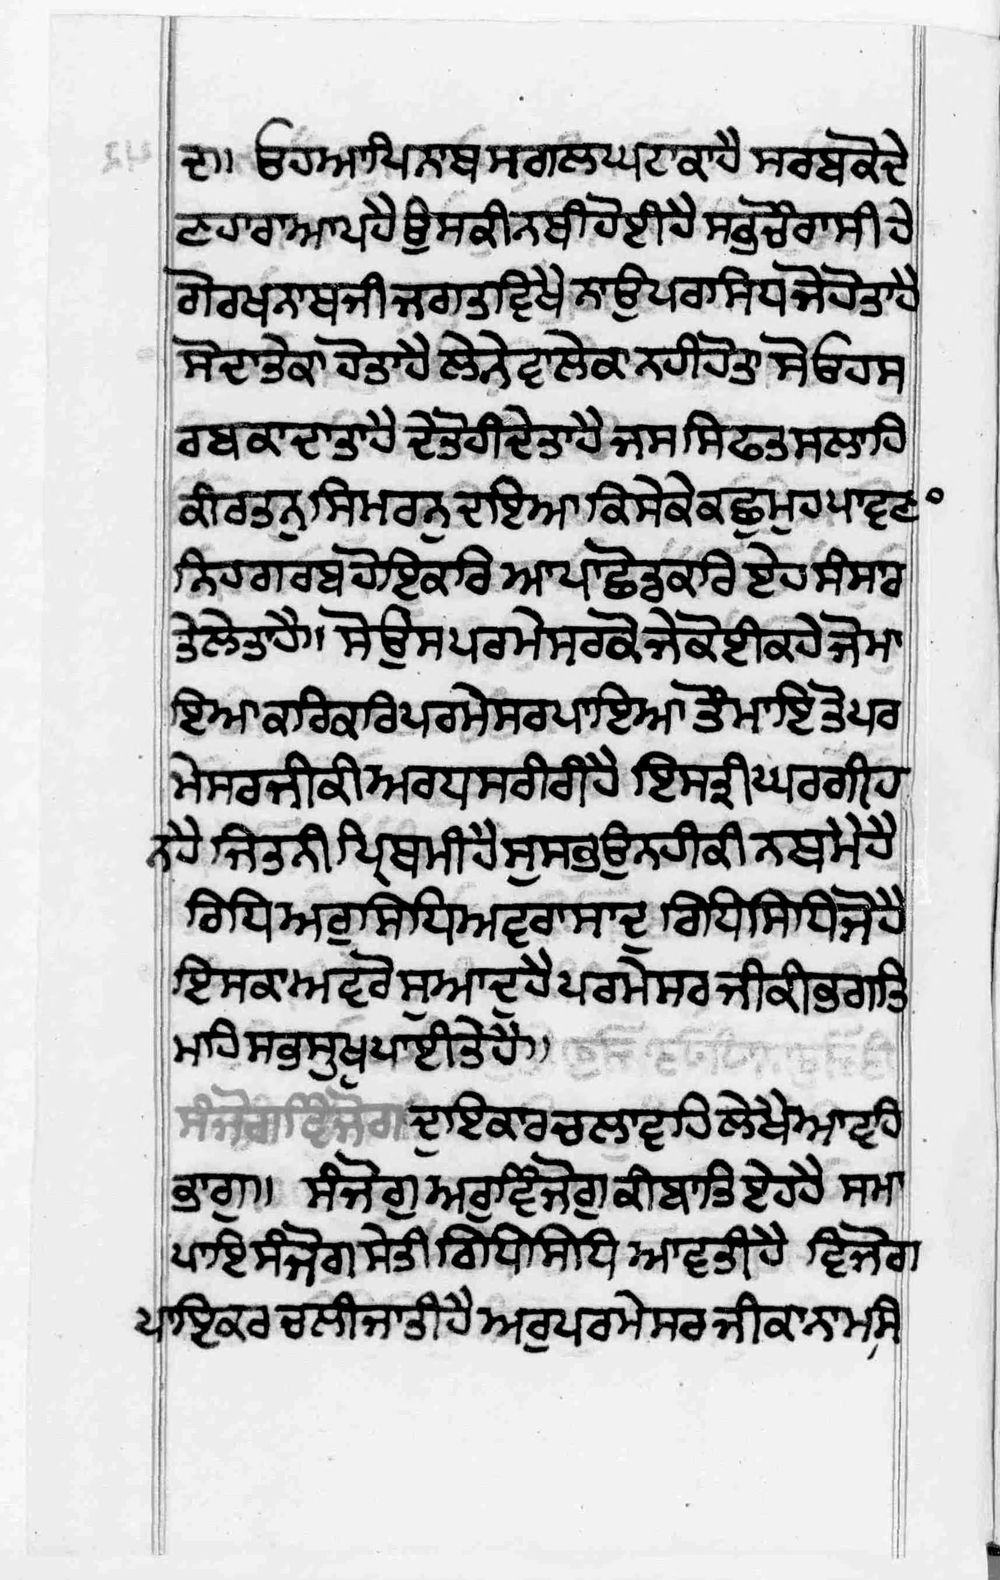 ਦ॥ ਓਹ ਆਪਿ ਨਾਥ ਸਗਲ ਘਟਾ ਕਾ ਹੈ ਸਰਬ ਕੋ ਦੇ
ਣਹਾਰਾ ਆਪ ਹੈ ਉਸ ਕੀ ਨਥੀ ਹੋਈ ਹੈ ਸਭੁ ਚੌਰਾਸੀ ਹੇ
ਗੋਰਖ ਨਾਥ ਜੀ ਜਗਤ ਵਿਖੈ ਨਾਉ ਪਰਸਿਧ ਜੋ ਹੋਤਾ ਹੈ
ਸੋ ਦਾਤੇ ਕਾ ਹੋਤਾ ਹੈ ਲੇਨੇ ਵਾਲੇ ਕਾ ਨਹੀ ਹੋਤਾ ਸੋ ਓਹ ਸ
ਰਬ ਕਾ ਦਾਤਾ ਹੈ ਦੇਤੋ ਹੀ ਦੇਤਾ ਹੈ ਜਸ ਸਿਫਤ ਸਲਾਹਿ
ਕੀਰਤਨੁ ਸਿਮਰਨੁ ਦਾਇਆ ਕਿਸੇ ਕੇ ਕਛੁ ਮੁਹ ਪਾਵਣ
ਨਿਹਗਰਬ ਹੋਇ ਕਰਿ ਆਪਾ ਛੋਡ ਕਰਿ ਏਹ ਸੰਸਾਰ
ਤੇ ਲੇਤਾ ਹੈ॥ ਸੋ ਉਸ ਪਰਮੇਸਰ ਕੋ ਜੇ ਕੋਈ ਕਹੇ ਜੋ ਮਾ
ਇਆ ਕਰਿ ਕਰਿ ਪਰਮੇਸਰ ਪਾਇਆ ਤੌ ਮਾਇ ਤੋ ਪਰ
ਮੇਸਰ ਜੀ ਕੀ ਅਰਧ ਸਰੀਰੀ ਹੈ ਇਸਤ੍ਰੀ ਘਰ ਗੀਹ
ਨ ਹੈ ਜਿਤਨੀ ਪ੍ਰਿਥਮੀ ਹੈ ਸੁ ਸਭੁ ਉਨਹੀ ਕੀ ਨਥ ਮੈ ਹੈ
ਰਿਧਿ ਅਰੁ ਸਿਧਿ ਅਵਰਾ ਸਾਦੁ ਰਿਧਿ ਸਿਧਿ ਜੋ ਹੈ
ਇਸ ਕਾ ਅਵਰੋ ਸੁਆਦੁ ਹੈ ਪਰਮੇਸਰ ਜੀ ਕੀ ਭਗਤਿ
ਮਹਿ ਸਭ ਸੁਖ ਪਾਈਤੇ ਹੈ॥
ਸੰਜੋਗ ਵਿਜੋਗ ਦੁਇ ਕਾਰ ਚਲਾਵਹਿ ਲੇਖੈ ਆਵਹਿ
ਭਾਗੁ॥ ਸੰਜੋਗੁ ਅਰੁ ਵਿਜੋਗੁ ਕੀ ਬਾਤਿ ਏਹ ਹੈ ਸਮਾ
ਪਾਇ ਸੰਜੋਗ ਸੇਤੀ ਰਿਧਿ ਸਿਧਿ ਆਵਤੀ ਹੈ ਵਿਜੋਗ
ਪਾਇ ਕਰ ਚਲੀ ਜਾਤੀ ਹੈ ਅਰੁ ਪਰਮੇਸਰ ਜੀ ਕਾ ਨਾਮ ਸਿ